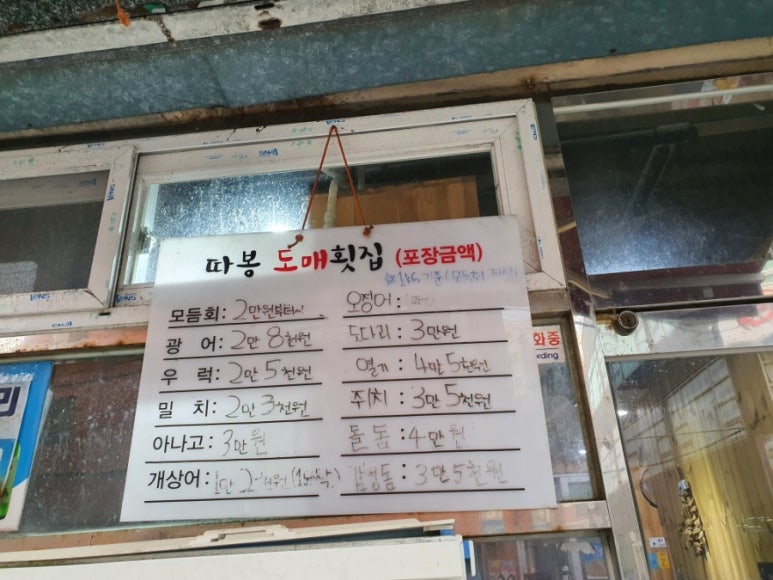 따봉 도매횟집 (포장금액)
모듬회: 2만원부터~
광 어: 2만 8천원
우 럭: 2만 5천원
밀 치: 2만 3천원
아나고: 3만원
개상어: 1만 2천원
오징어:
도다리: 3만원
열기 4만 5천원
쥐치: 3만 5천원
돌돔: 4만원
감성돔: 3만 5천원
화중
rding
리